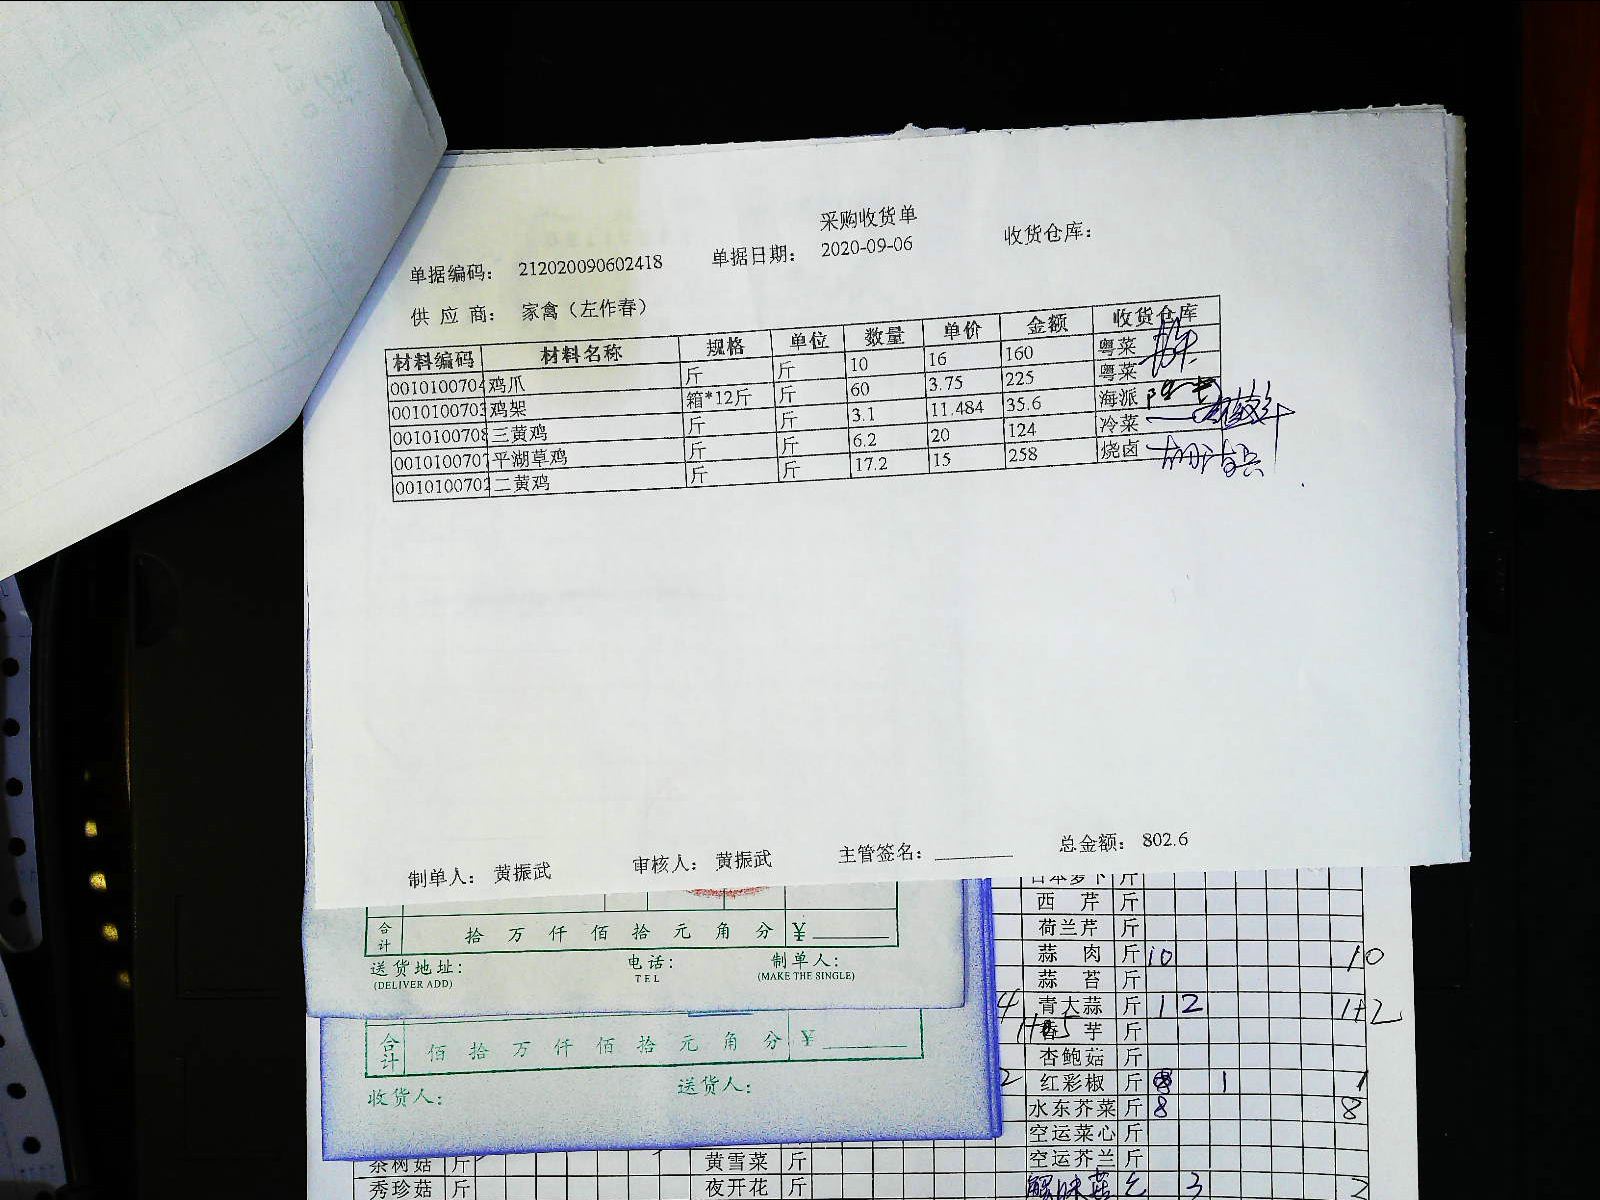 采购收货单
单据编码： 212020090602418 单据日期： 2020-09-06 收货仓库：
供 应 商： 家禽（左作春）
材料编码 材料名称 规格 单位 数量 单价 金额 收货仓库
0010100704 鸡爪 斤 斤 10 16 160 粤菜
0010100703 鸡架 箱*12斤 斤 60 3.75 225 粤菜
0010100708 三黄鸡 斤 斤 3.1 11.484 35.6 海派
0010100707 平湖草鸡 斤 斤 6.2 20 124 冷菜
0010100702 二黄鸡 斤 斤 17.2 15 258 烧卤
制单人： 黄振武 审核人： 黄振武 主管签名： 总金额： 802.6
合计 拾 万 仟 佰 拾 元 角 分 ¥
送货地址： 电话： 制单人：
(DELIVER ADD) TEL (MAKE THE SINGLE)
合计 佰 拾 万 仟 佰 拾 元 角 分 ¥
收货人： 送货人：
日本萝卜 斤
西 芹 斤
荷兰芹 斤
蒜 肉 斤 10 10
蒜 苔 斤
4 青大蒜 斤 1 2 1+2
香 芋 斤
杏鲍菇 斤
2 红彩椒 斤 1 1
水东芥菜 斤 8 8
空运菜心 斤
茶树菇 斤 黄雪菜 斤 空运芥兰 斤
秀珍菇 斤 夜开花 斤 3